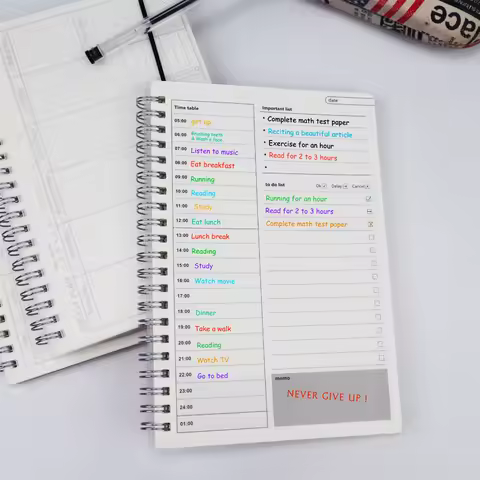 lace
date:
Time table
05:00 get up
06:00 Brushing teeth & Wash a face
07:00 Listen to music
08:00 Eat breakfast
09:00 Running
10:00 Reading
11:00 Study
12:00 Eat lunch
13:00 Lunch break
14:00 Reading
15:00 Study
16:00 Watch movie
17:00
18:00 Dinner
19:00 Take a walk
20:00 Reading
21:00 Watch TV
22:00 Go to bed
23:00
24:00
01:00
Important list
• Complete math test paper
• Reciting a beautiful article
• Exercise for an hour
• Read for 2 to 3 hours
•
to do list Ok Delay Cancel
Running for an hour
Read for 2 to 3 hours
Complete math test paper
NEVER GIVE UP !